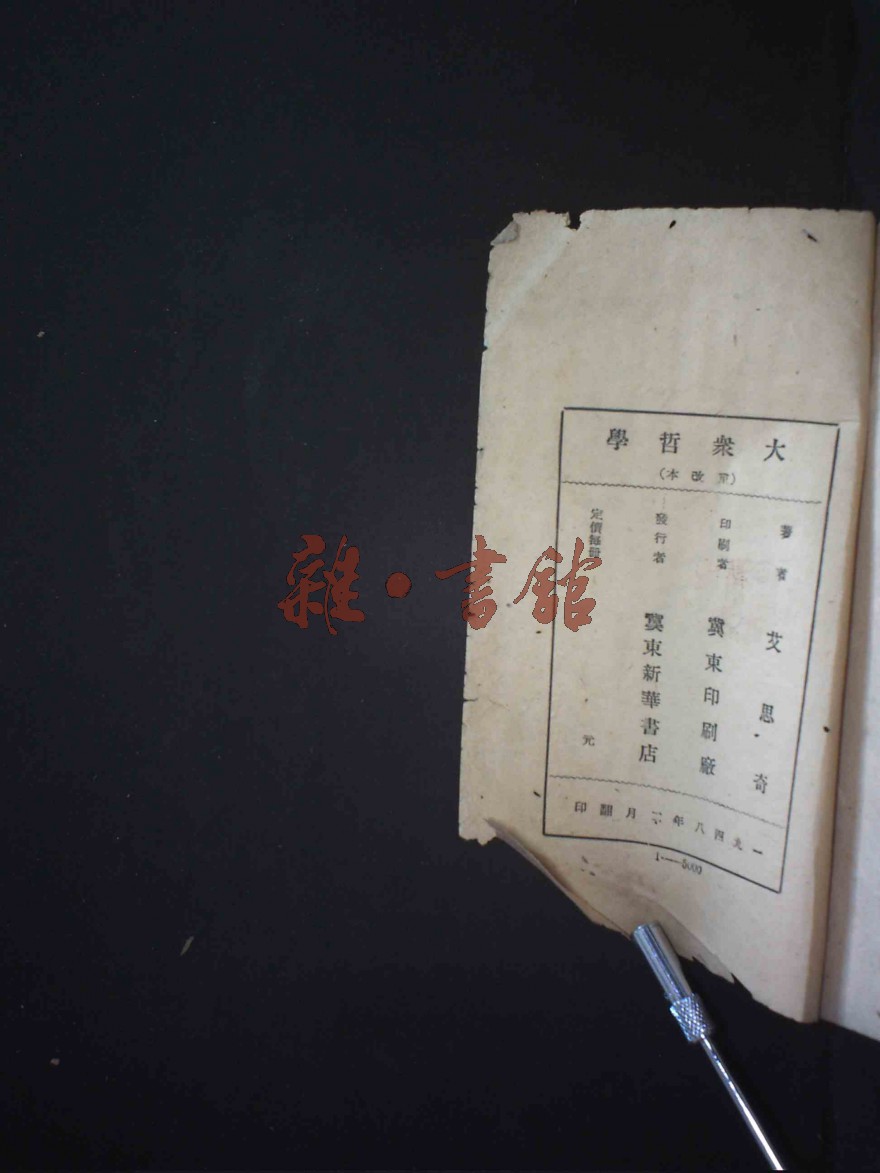 大衆哲學
（重改本）
著者 艾思奇
印刷者 冀東印刷廠
發行者 冀東新華書店
定價每冊 元
一九四八年 月翻印
1——5000
雜·書館